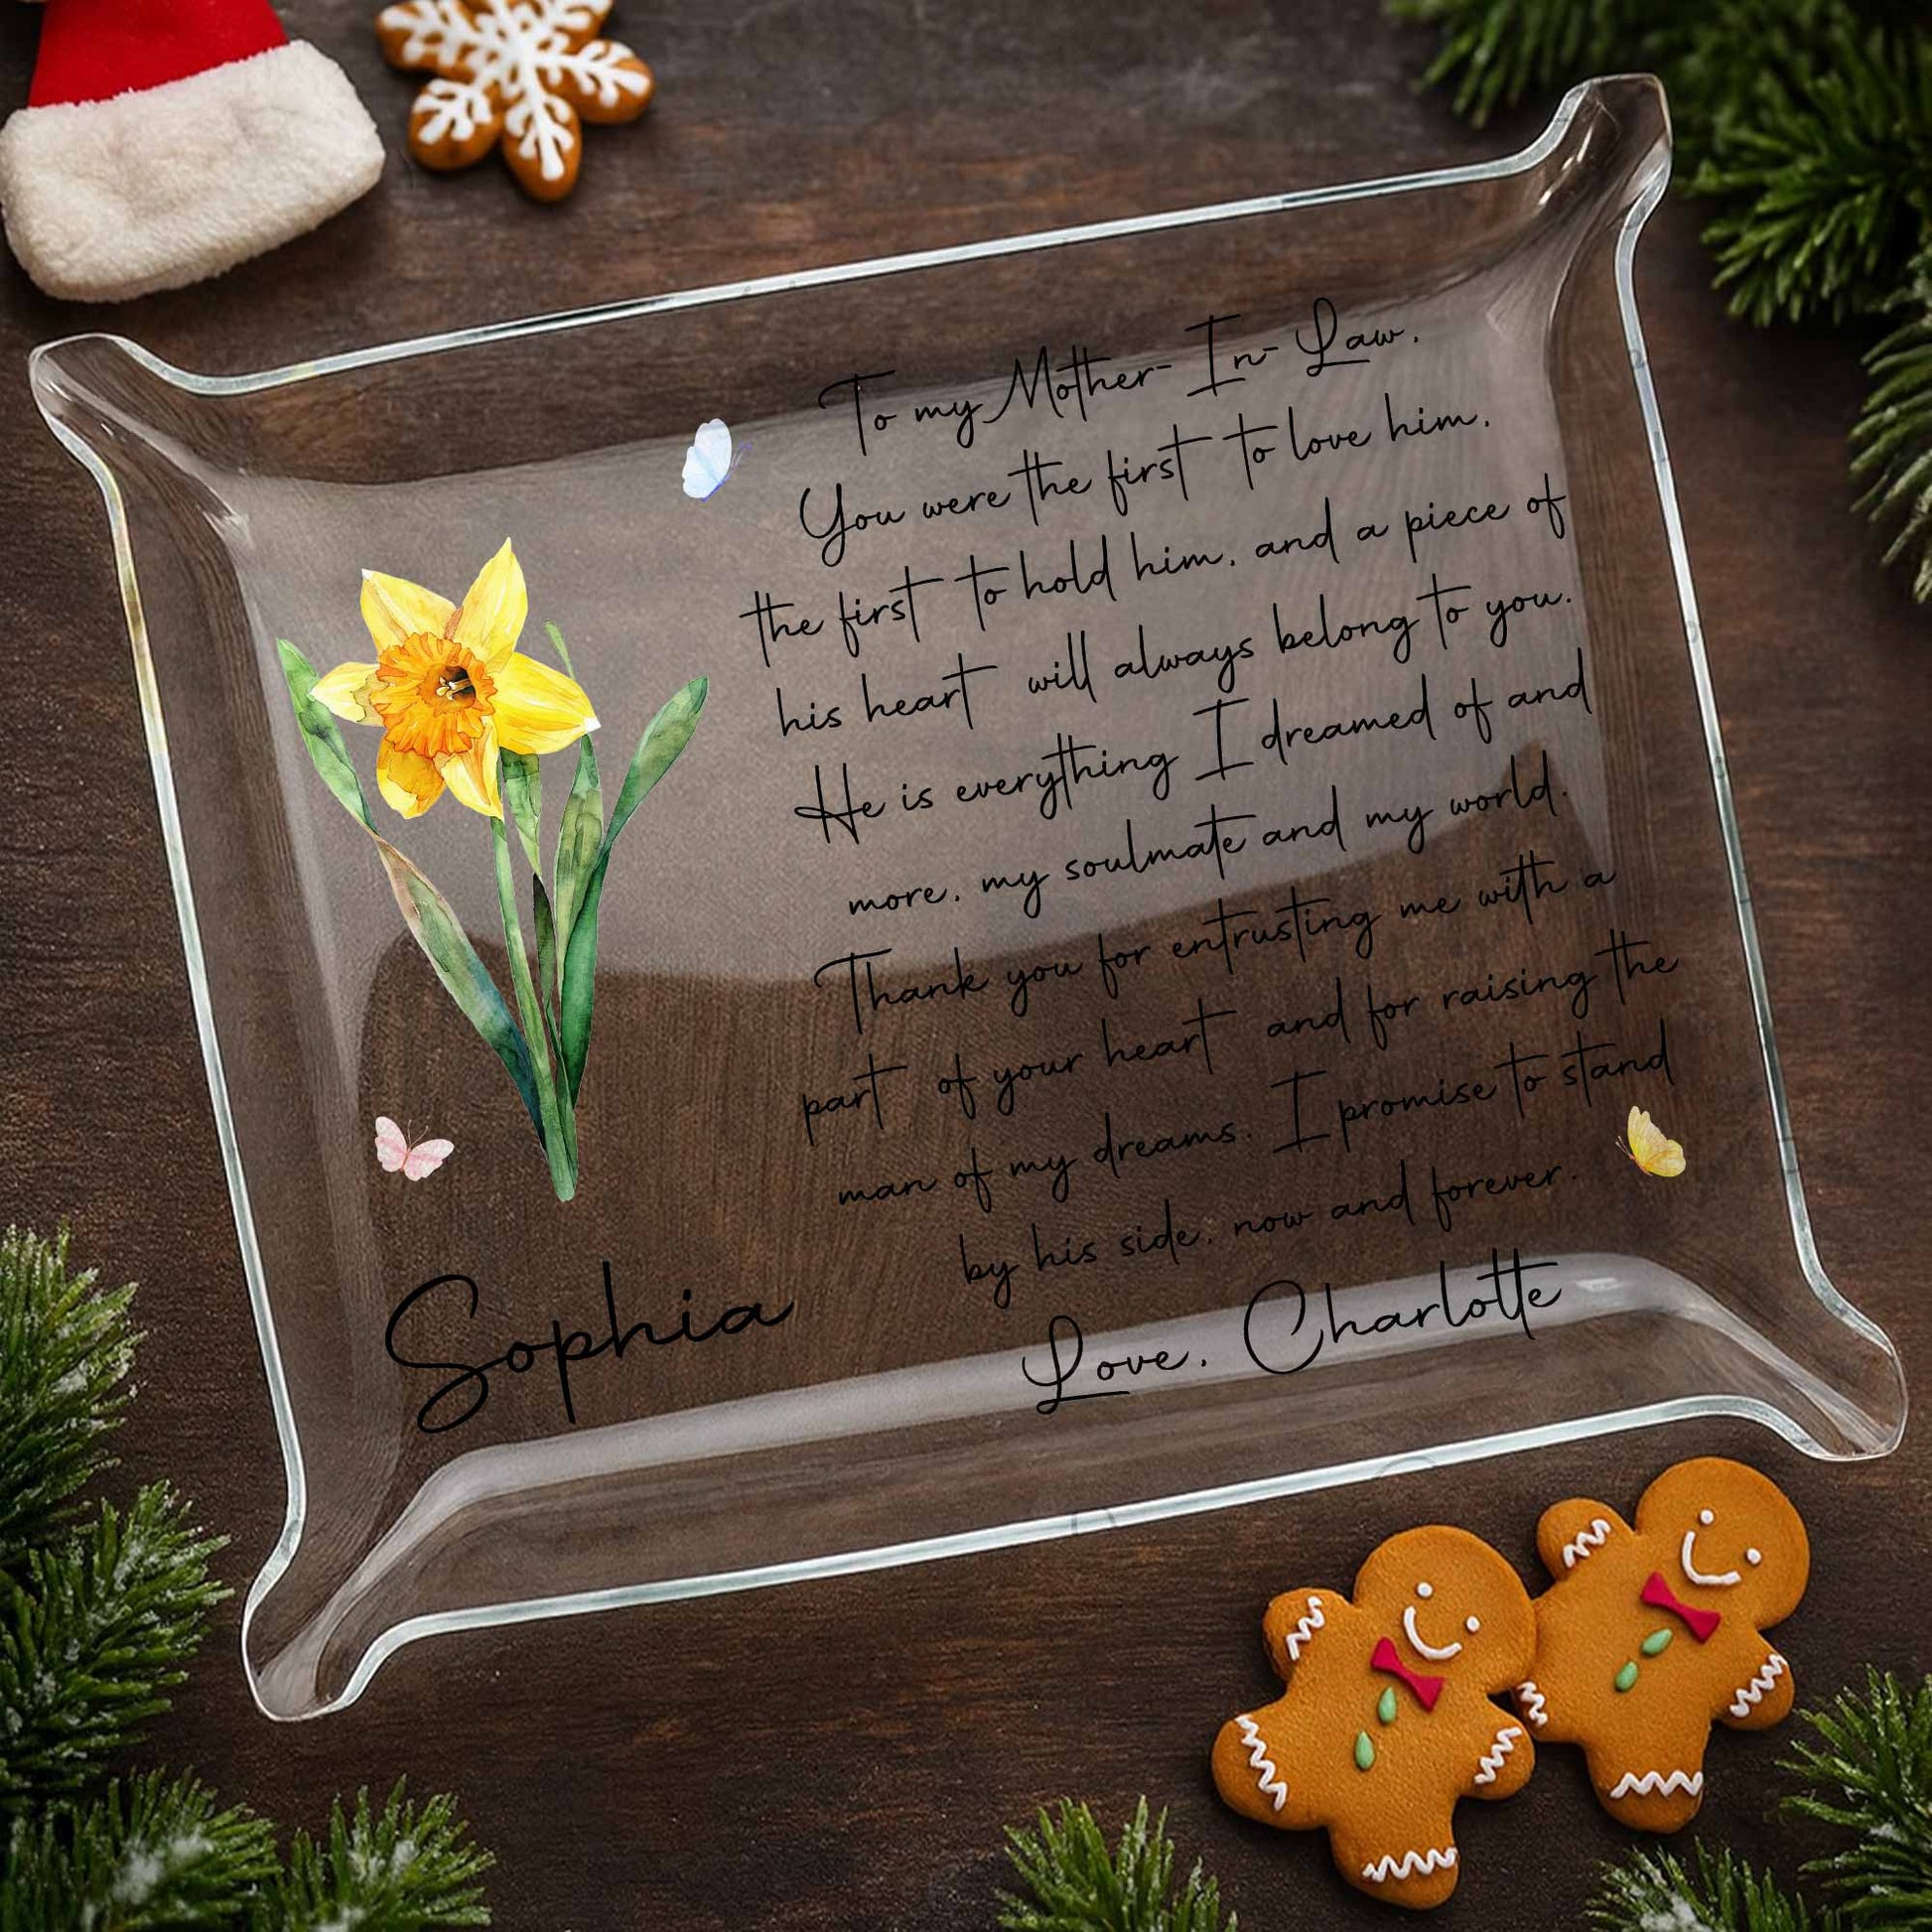 To my Mother-In-Law,
You were the first to love him,
the first to hold him, and a piece of
his heart will always belong to you.
He is everything I dreamed of and
more, my soulmate and my world.
Thank you for entrusting me with a
part of your heart and for raising the
man of my dreams. I promise to stand
by his side, now and forever.
Love, Charlotte
Sophia